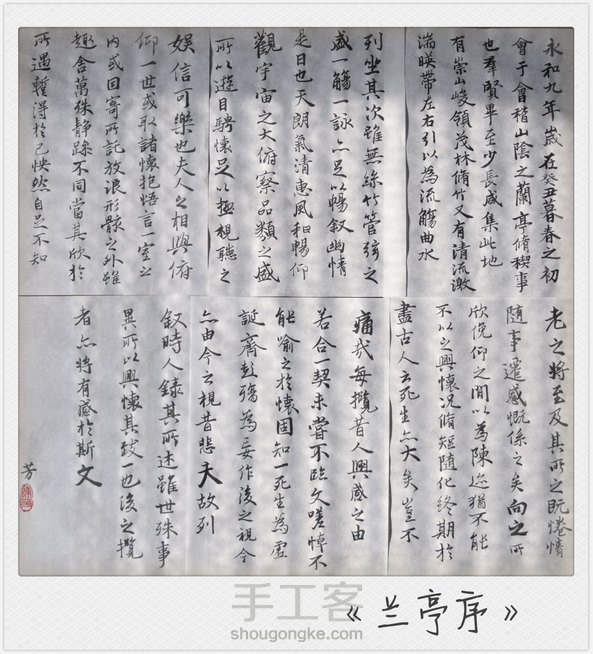 永和九年歲在癸丑暮春之初
會于會稽山陰之蘭亭脩稧事
也羣賢畢至少長咸集此地
有崇山峻領茂林脩竹又有清流激
湍暎帶左右引以為流觴曲水
列坐其次雖無絲竹管弦之
盛一觴一詠亦足以暢敘幽情
是日也天朗氣清惠風和暢仰
觀宇宙之大俯察品類之盛
所以遊目騁懷足以極視聽之
娛信可樂也夫人之相與俯
仰一世或取諸懷抱悟言一室之
內或因寄所託放浪形骸之外雖
趣舍萬殊靜躁不同當其欣於
所遇暫得於己怏然自足不知
老之將至及其所之既惓情
隨事遷感慨係之矣向之所
欣俛仰之間以為陳迹猶不能
不以之興懷況脩短隨化終期於
盡古人云死生亦大矣豈不
痛哉每攬昔人興感之由
若合一契未嘗不臨文嗟悼不
能喻之於懷固知一死生為虛
誕齊彭殤為妄作後之視今
亦由今之視昔悲夫故列
敘時人錄其所述雖世殊事
異所以興懷其致一也後之攬
者亦將有感於斯文
芳
手工客
《兰亭序》
shougongke.com